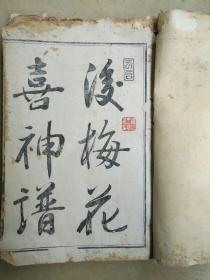 後梅花
喜神譜